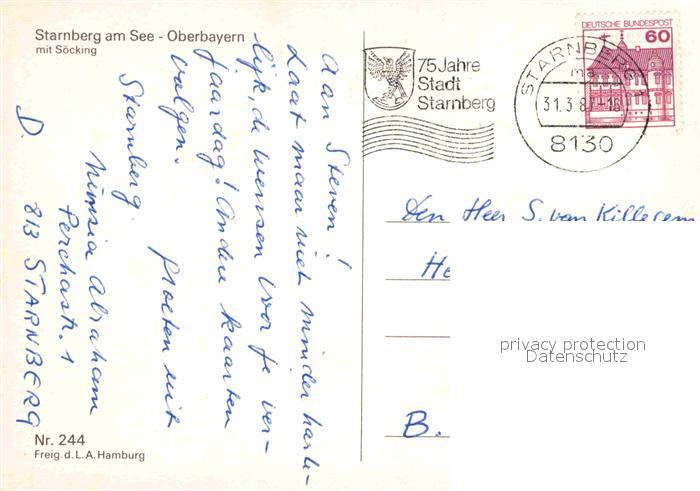 Starnberg am See - Oberbayern
mit Söcking
Aan Steven!
Laat maar niet minder harte-
lijk, de wensen voor je ver-
jaardag! Andere kaarten
volgen.
groeten uit
Starnberg.
Abraham
Perchastr. 1
813 STARNBERG
D.
Nr. 244
Freig. d. L. A. Hamburg
75 Jahre
Stadt
Starnberg
STARNBERG 1
31.3.87-16
8130
DEUTSCHE BUNDESPOST
60
Den Heer S. van
He
B.
privacy protection
Datenschutz